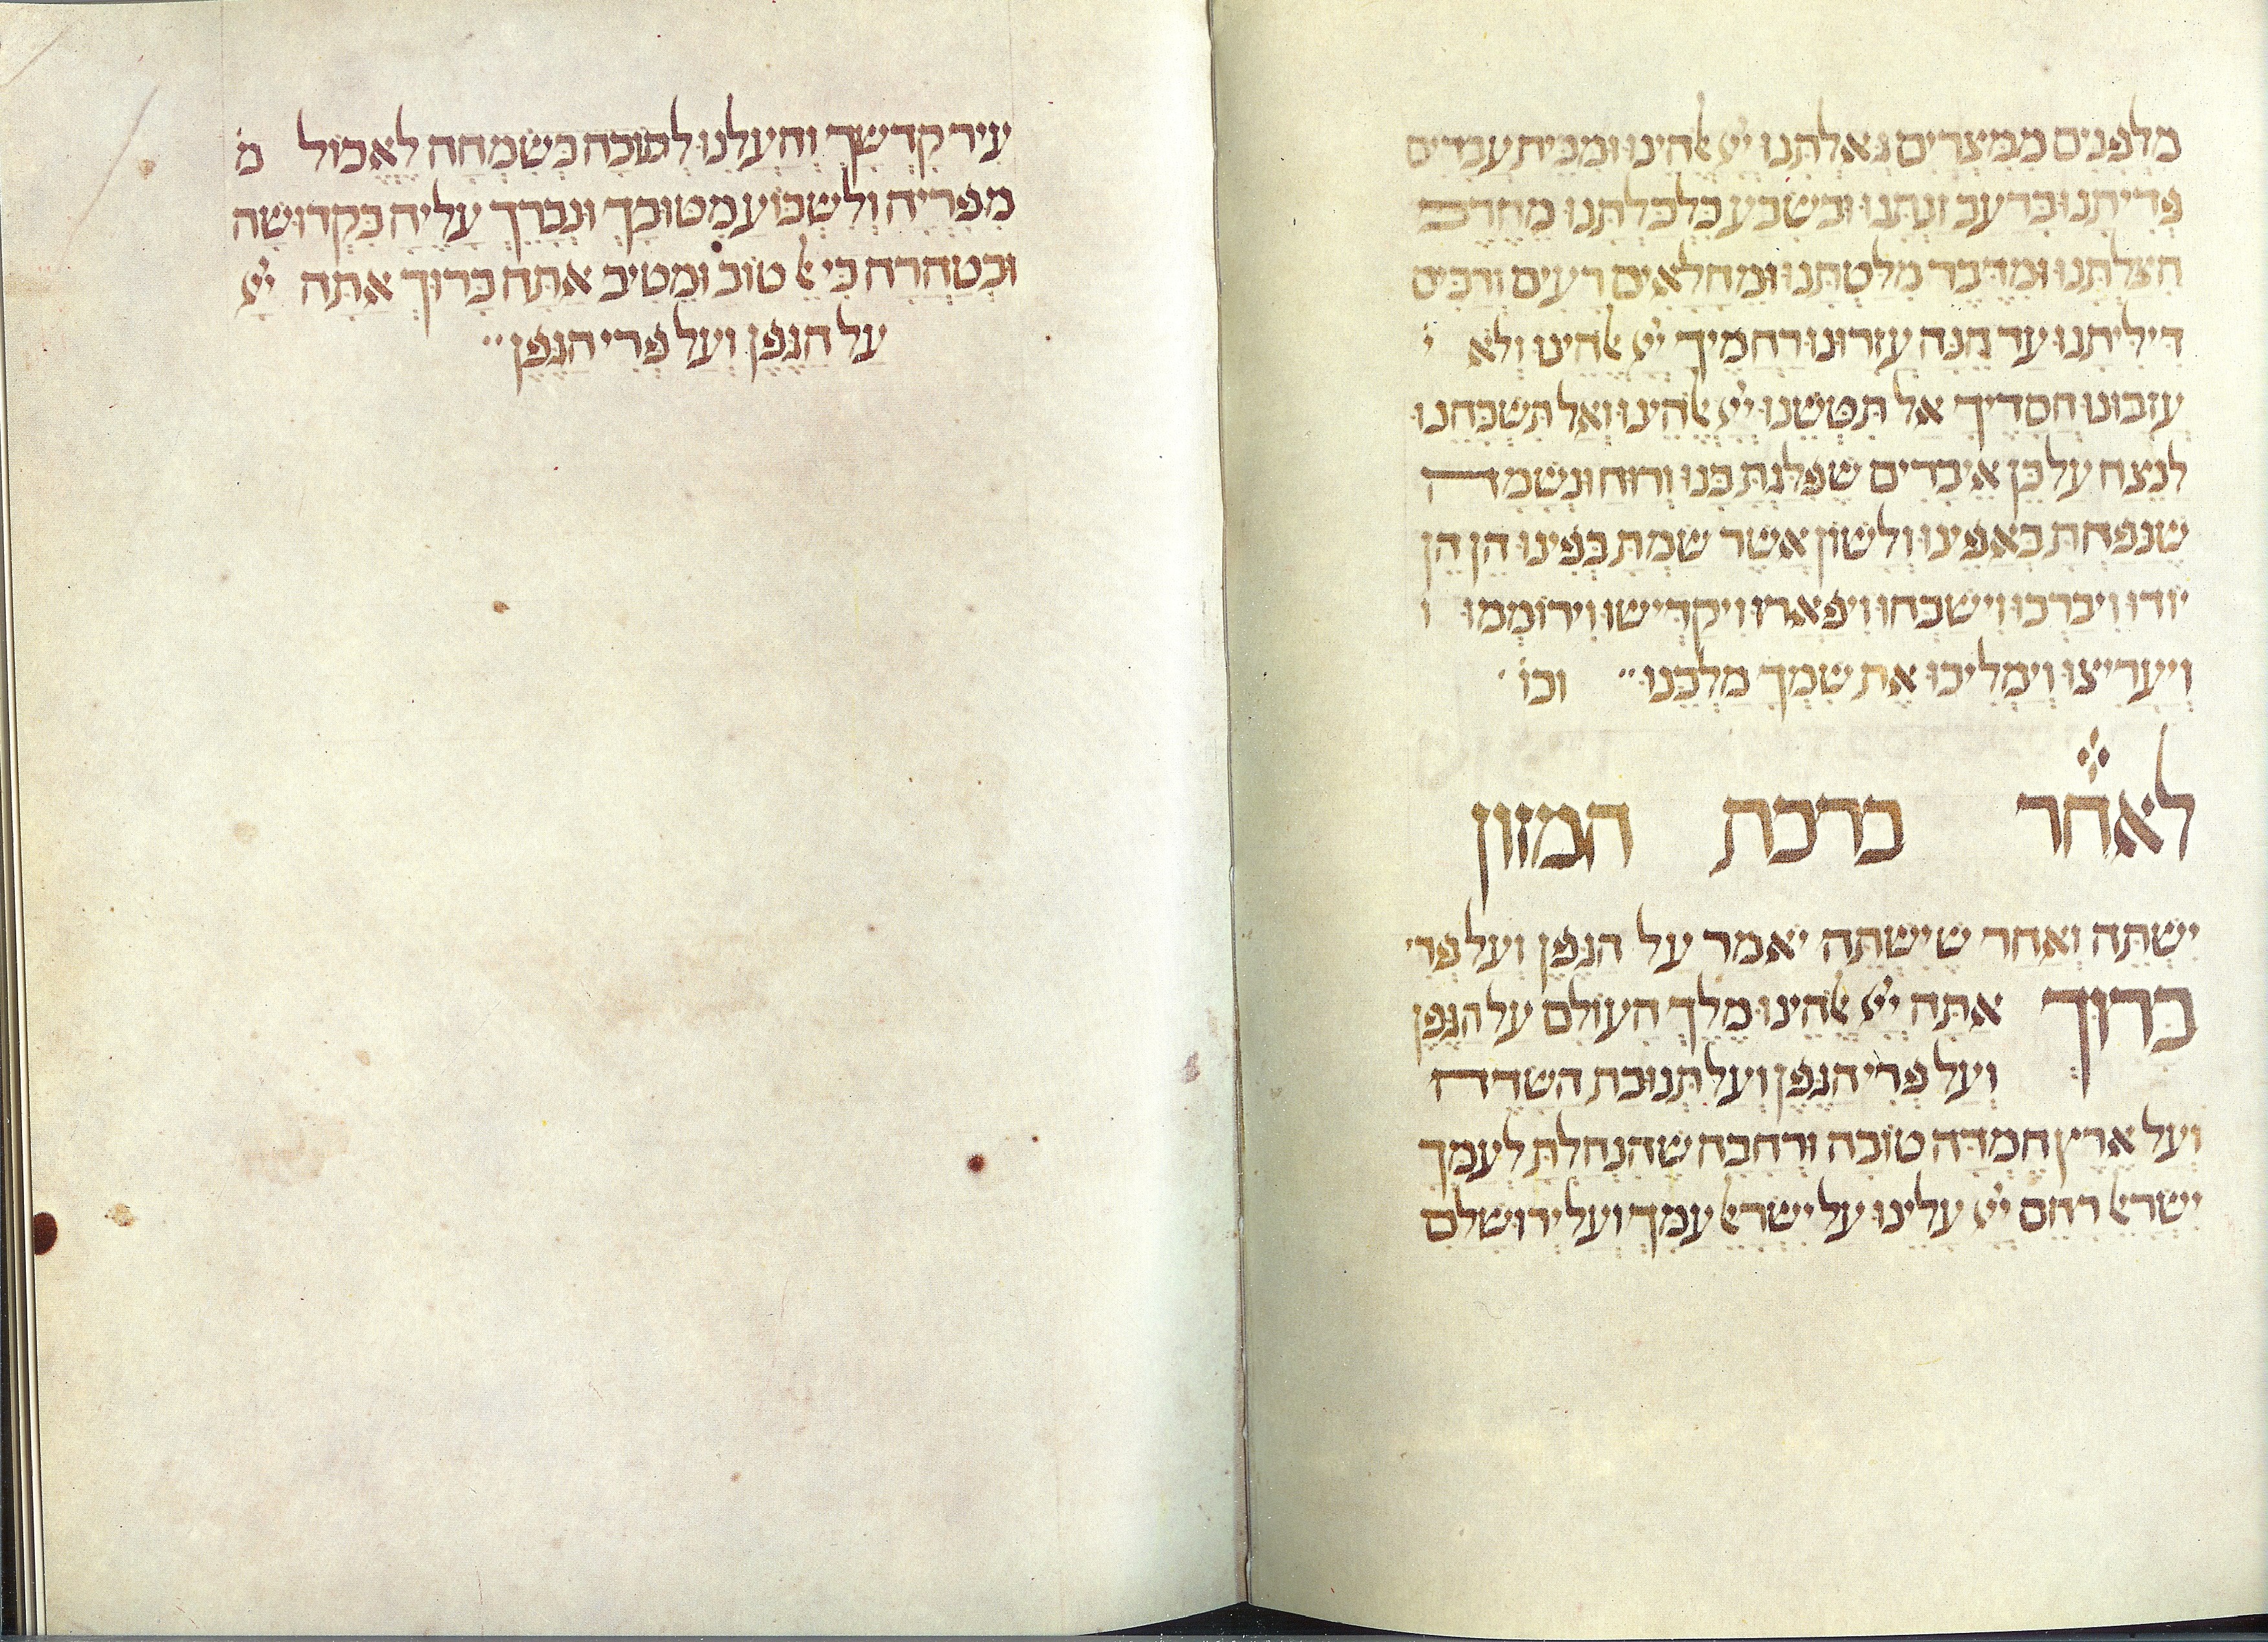 מלפנים ממצרים גאלתנו יי אלהינו ומבית עבדים
פדיתנו ברעב זנתנו ובשבע כלכלתנו מחרב
הצלתנו ומדבר מלטתנו ומחלאים רעים ורבים
דיליתנו עד הנה עזרונו רחמיך יי אלהינו ולא י
עזבונו חסדיך אל תטשנו יי אלהינו ואל תשכחנו
לנצח על כן איברים שפלגת בנו ורוח ונשמה
שנפחת באפינו ולשון אשר שמת בפינו הן הן
יודו ויברכו וישבחו ויפארו ויקדישו וירוממו ו
ויעריצו וימליכו את שמך מלכנו וכו׳
לאחר ברכת המזון
ישתה ואחר שישתה יאמר על הגפן ועל פרי
ברוך אתה יי אלהינו מלך העולם על הגפן
ועל פרי הגפן ועל תנובת השדה
ועל ארץ חמדה טובה ורחבה שהנחלת לעמך
ישראל רחם יי עלינו על ישראל עמך ועל ירושלם
עיר קדשך והעלנו לתוכה בשמחה לאכול מ
מפריה ולשבוע מטובך ונברך עליה בקדושה
ובטהרה כי אל טוב ומטיב אתה ברוך אתה יי
על הגפן ועל פרי הגפן